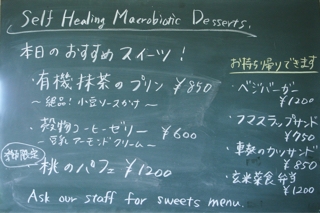 Self Healing Macrobiotic Desserts.
本日のおすすめスイーツ!
・有機抹茶のプリン ¥850
〜絶品!小豆ソースかけ〜
・穀物コーヒーゼリー ¥600
〜豆乳アーモンドクリーム〜
季節限定
・桃のパフェ ¥1200
Ask our staff for sweets menu.
お持ち帰りできます
・ベジバーガー
¥1200
・フフスラップサンド
¥750
・車麩のカツサンド
¥850
・玄米菜食弁当
¥1200